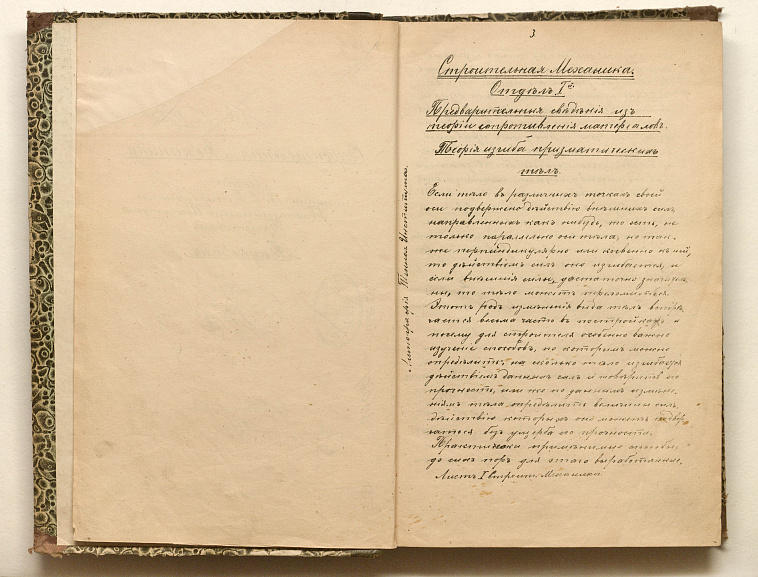 3
Строительная Механика.
Отдѣлъ I й
Предварительныя свѣдѣнія изъ
теоріи сопротивленія матеріаловъ.
Теорія изгиба призматическихъ
тѣлъ.
Если тѣло въ различныхъ точкахъ своей
оси подвержено дѣйствію внѣшнихъ силъ,
направленныхъ какъ нибудь, то есть, не
только параллельно оси тѣла, но так-
же перпендикулярно или косвенно къ ней,
то дѣйствіемъ силъ оно изгибается, и
если внѣшнія силы, достаточно значитель-
ны, то тѣло можетъ переломиться.
Этотъ родъ измѣненія вида тѣлъ встрѣ-
чается весьма часто въ постройкахъ и
потому для строителя особенно важно
изученіе способовъ, по которымъ можно
опредѣлить, на сколько тѣло изгибается
дѣйствіемъ данныхъ силъ и повѣрить его
прочность, или же по даннымъ измѣне-
ніямъ тѣла опредѣлить величины силъ,
дѣйствію которыхъ оно можетъ подвер-
гаться безъ ущерба его прочности.
Практически примѣнимые способы,
до сихъ поръ для этого выработанные,
Листъ I Строит. Механика
Литографія Института.